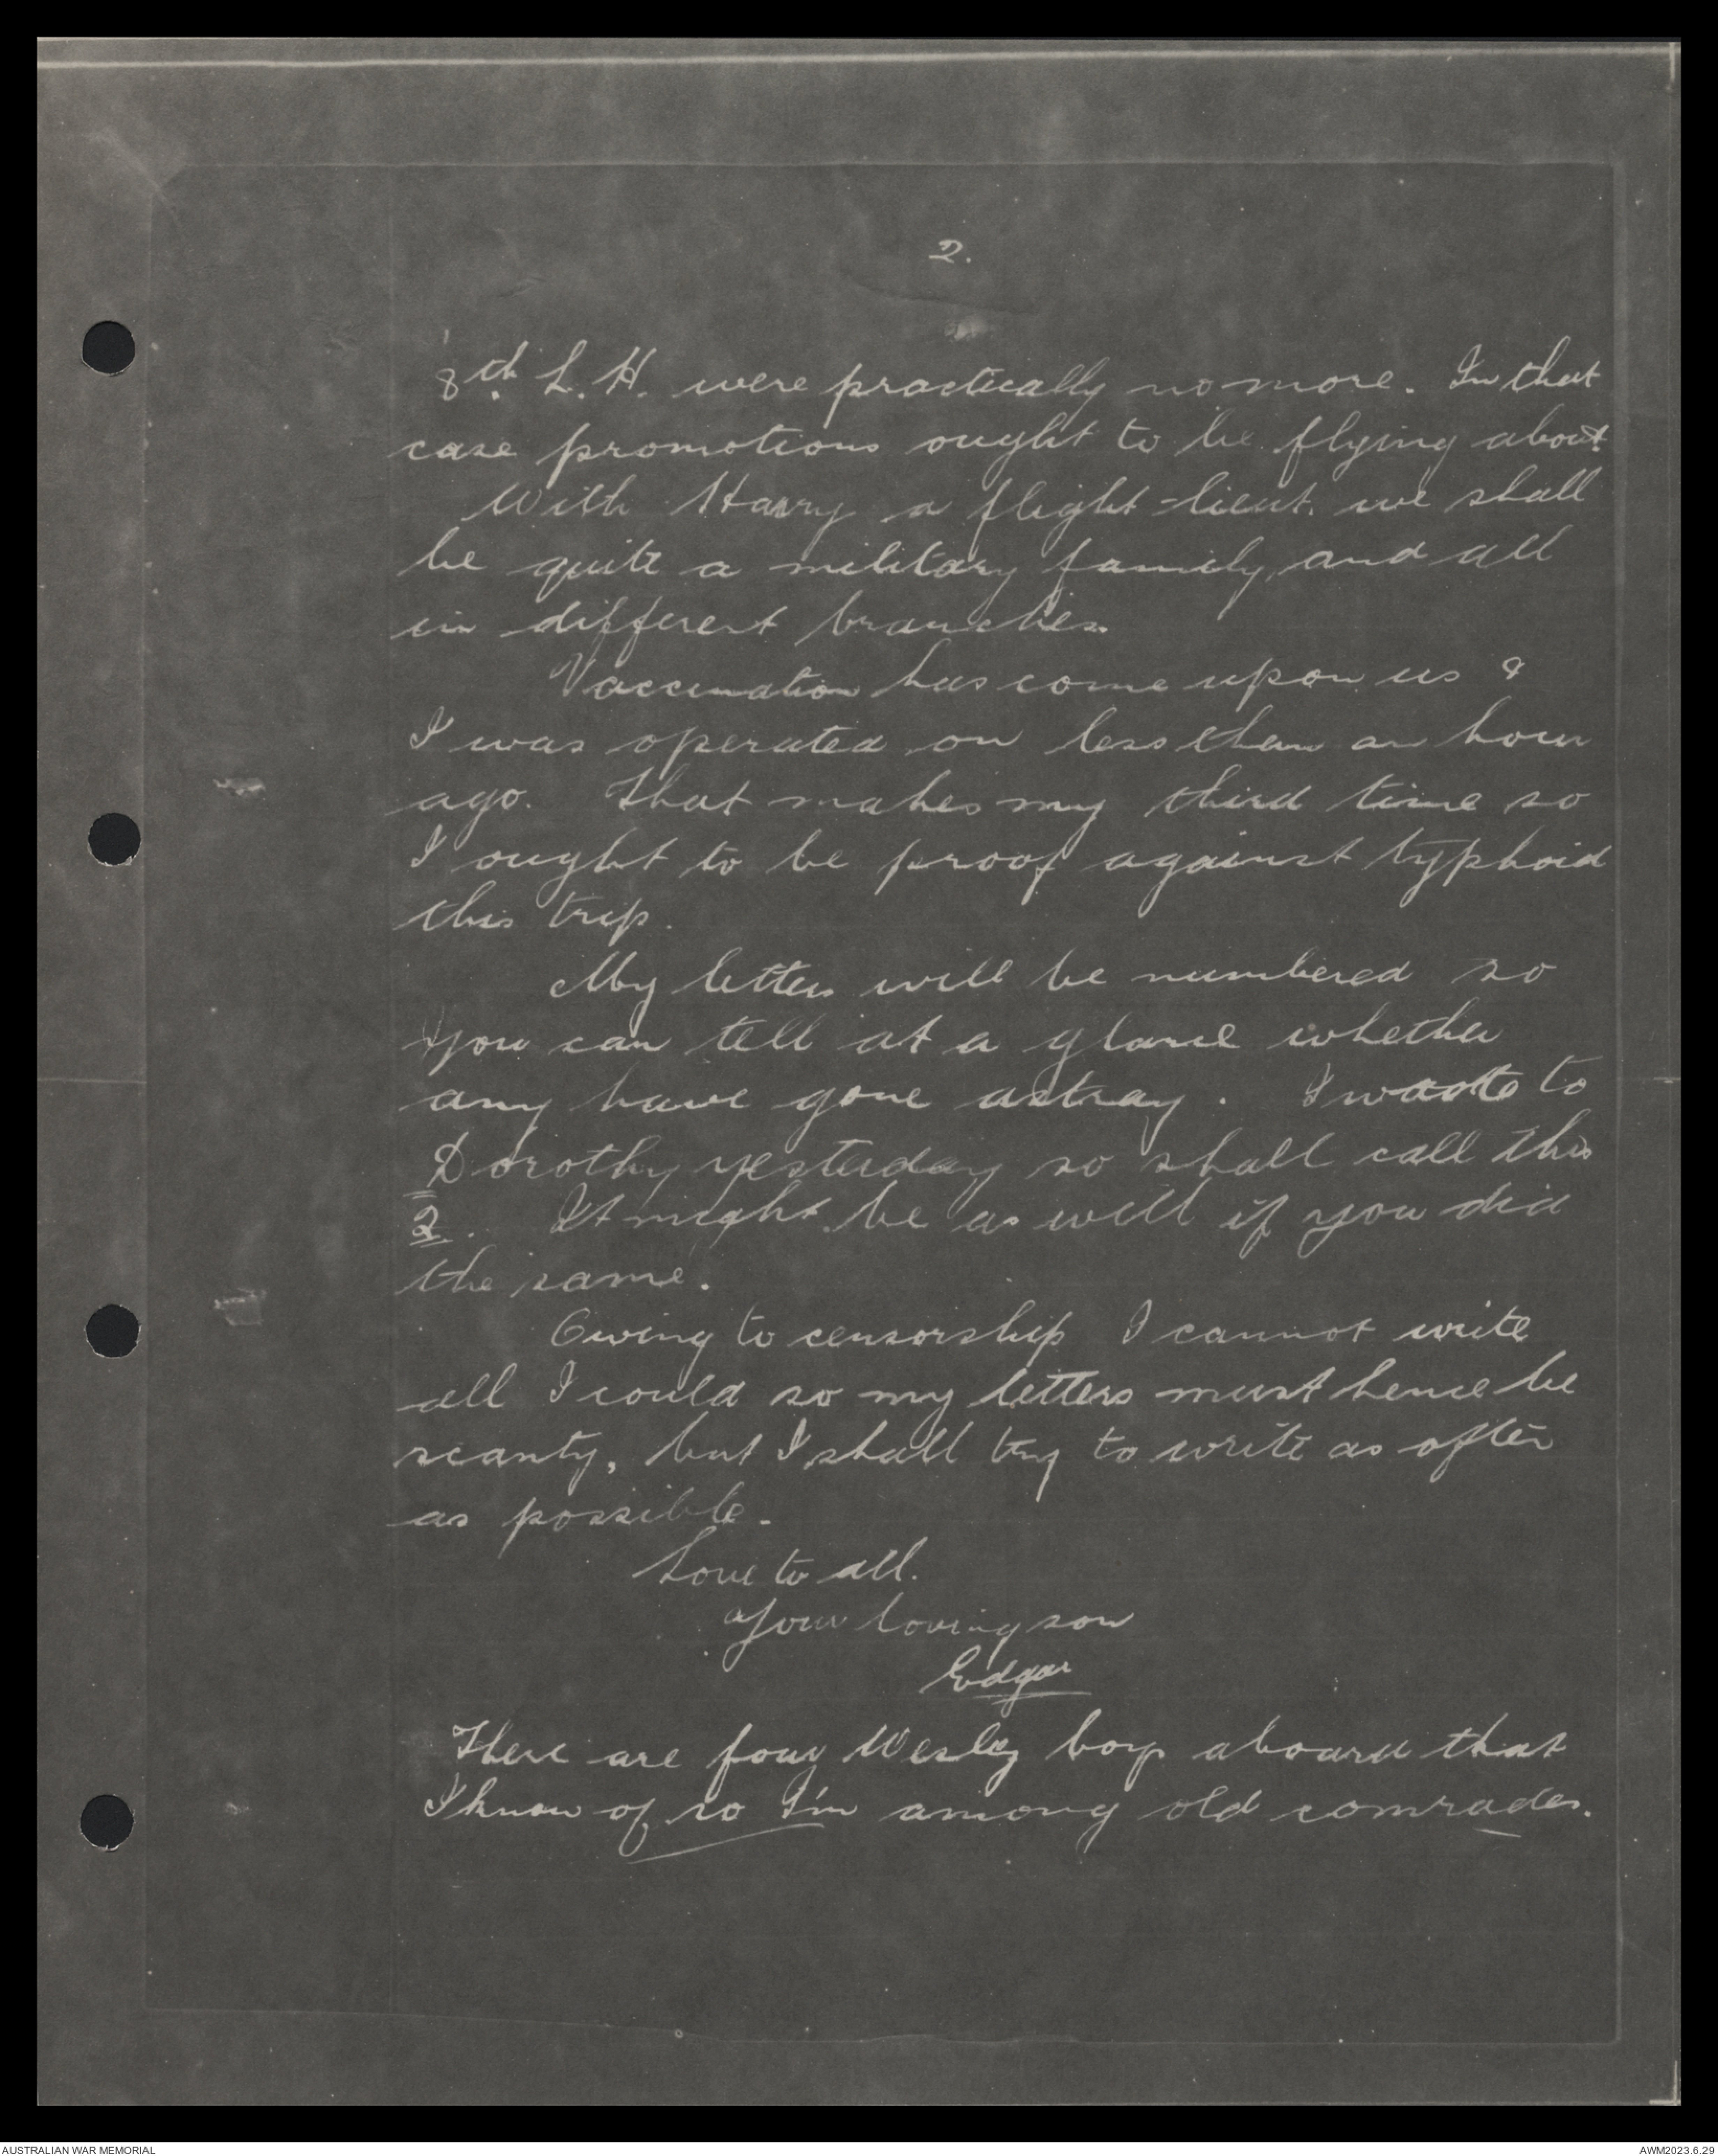 2.
8th. L. H. were practically no more. In that
case promotions ought to be flying about.
With Harry a flight-lieut. we shall
be quite a military family, and all
in different branches.
Vaccination has come upon us &
I was operated on less than an hour
ago. That makes my third time so
I ought to be proof against typhoid
this trip.
My letters will be numbered so
you can tell at a glance whether
any have gone astray. I wrote to
Dorothy yesterday so shall call this
2. It might be as well if you did
the same.
Owing to censorship I cannot write
all I could so my letters must hence be
scanty, but I shall try to write as often
as possible.
Love to all.
Your loving son
Edgar
There are four Wesley boys aboard that
I know of so I'm among old comrades.
AUSTRALIAN WAR MEMORIAL
AWM2023.6.29